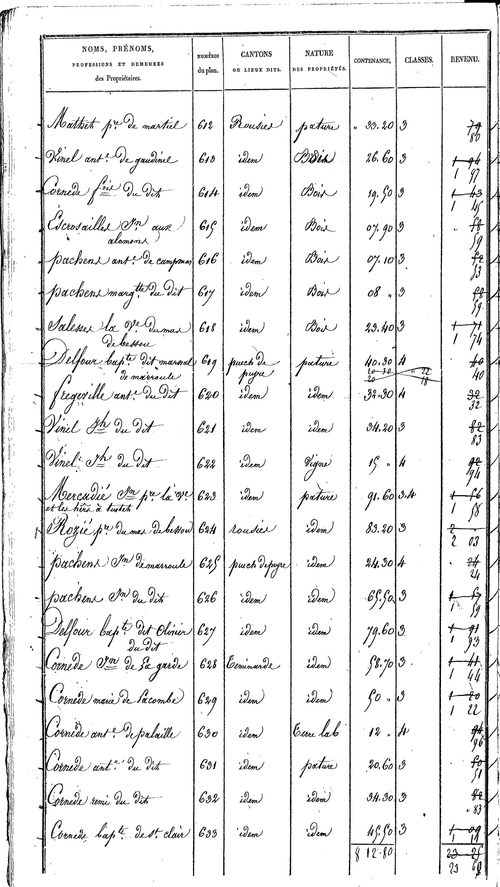 NOMS, PRÉNOMS,
PROFESSIONS ET DEMEURES
des Propriétaires.
NUMÉROS
du plan.
CANTONS
OU LIEUX DITS.
NATURE
DES PROPRIÉTÉS.
CONTENANCE,
CLASSES.
REVENU.
pre de martiel 612 Rousies pature " 33.20 3 79
80
Vinel ante de gaudinel 613 idem Bois 26.60 3 1 94
1 97
Cornede du dit 614 idem Bois 19.50 3 1 43
1 45
Escrosailles Jn aux 615 idem Bois 07.90 3 58
alemans 59
pachens ante de 616 idem Bois 07.10 3 52
53
pachens margte du dit 617 idem Bois 08 " 3 58
59
Salesses la ve du mas 618 idem Bois 23.40 3 1 71
de bessou 1 74
Delfour bapte dit 619 puech de pature 40.30 4 40
de marroule peyre 40
fregeville ante du dit 620 idem idem 32.30 4 32
32
Vinel Jh du dit 621 idem idem 34.20 3 82
83
Vinel Jh du dit 622 idem Vigne 15 " 4 92
94
Mercadié Jn pre la ve 623 idem pature 91.60 3.4 1 56
et les hers à 1 58
Rozié pre du mas de bessou 624 rousies idem 83.20 3 2
2 03
pachens Jn de marroule 625 puech de peyre idem 24.30 4 24
24
pachens Jn du dit 626 idem idem 65.50 3 1 57
1 59
Delfour bapte dit Olivier 627 idem idem 79.60 3 1 91
du dit 1 93
Cornede Jn de La garde 628 Teminarde idem 58.70 3 1 41
1 44
Cornede marie de Lacombe 629 idem idem 50 " 3 1 20
1 22
Cornede ante de palaille 630 idem Terre lab 12 " 4 94
96
Cornede ante du dit 631 idem pature 20.60 3 50
51
Cornede remi du dit 632 idem idem 34.30 3 82
83
Cornede bapte de st clair 633 idem idem 45.50 3 1 09
8 12.80 23 25
23